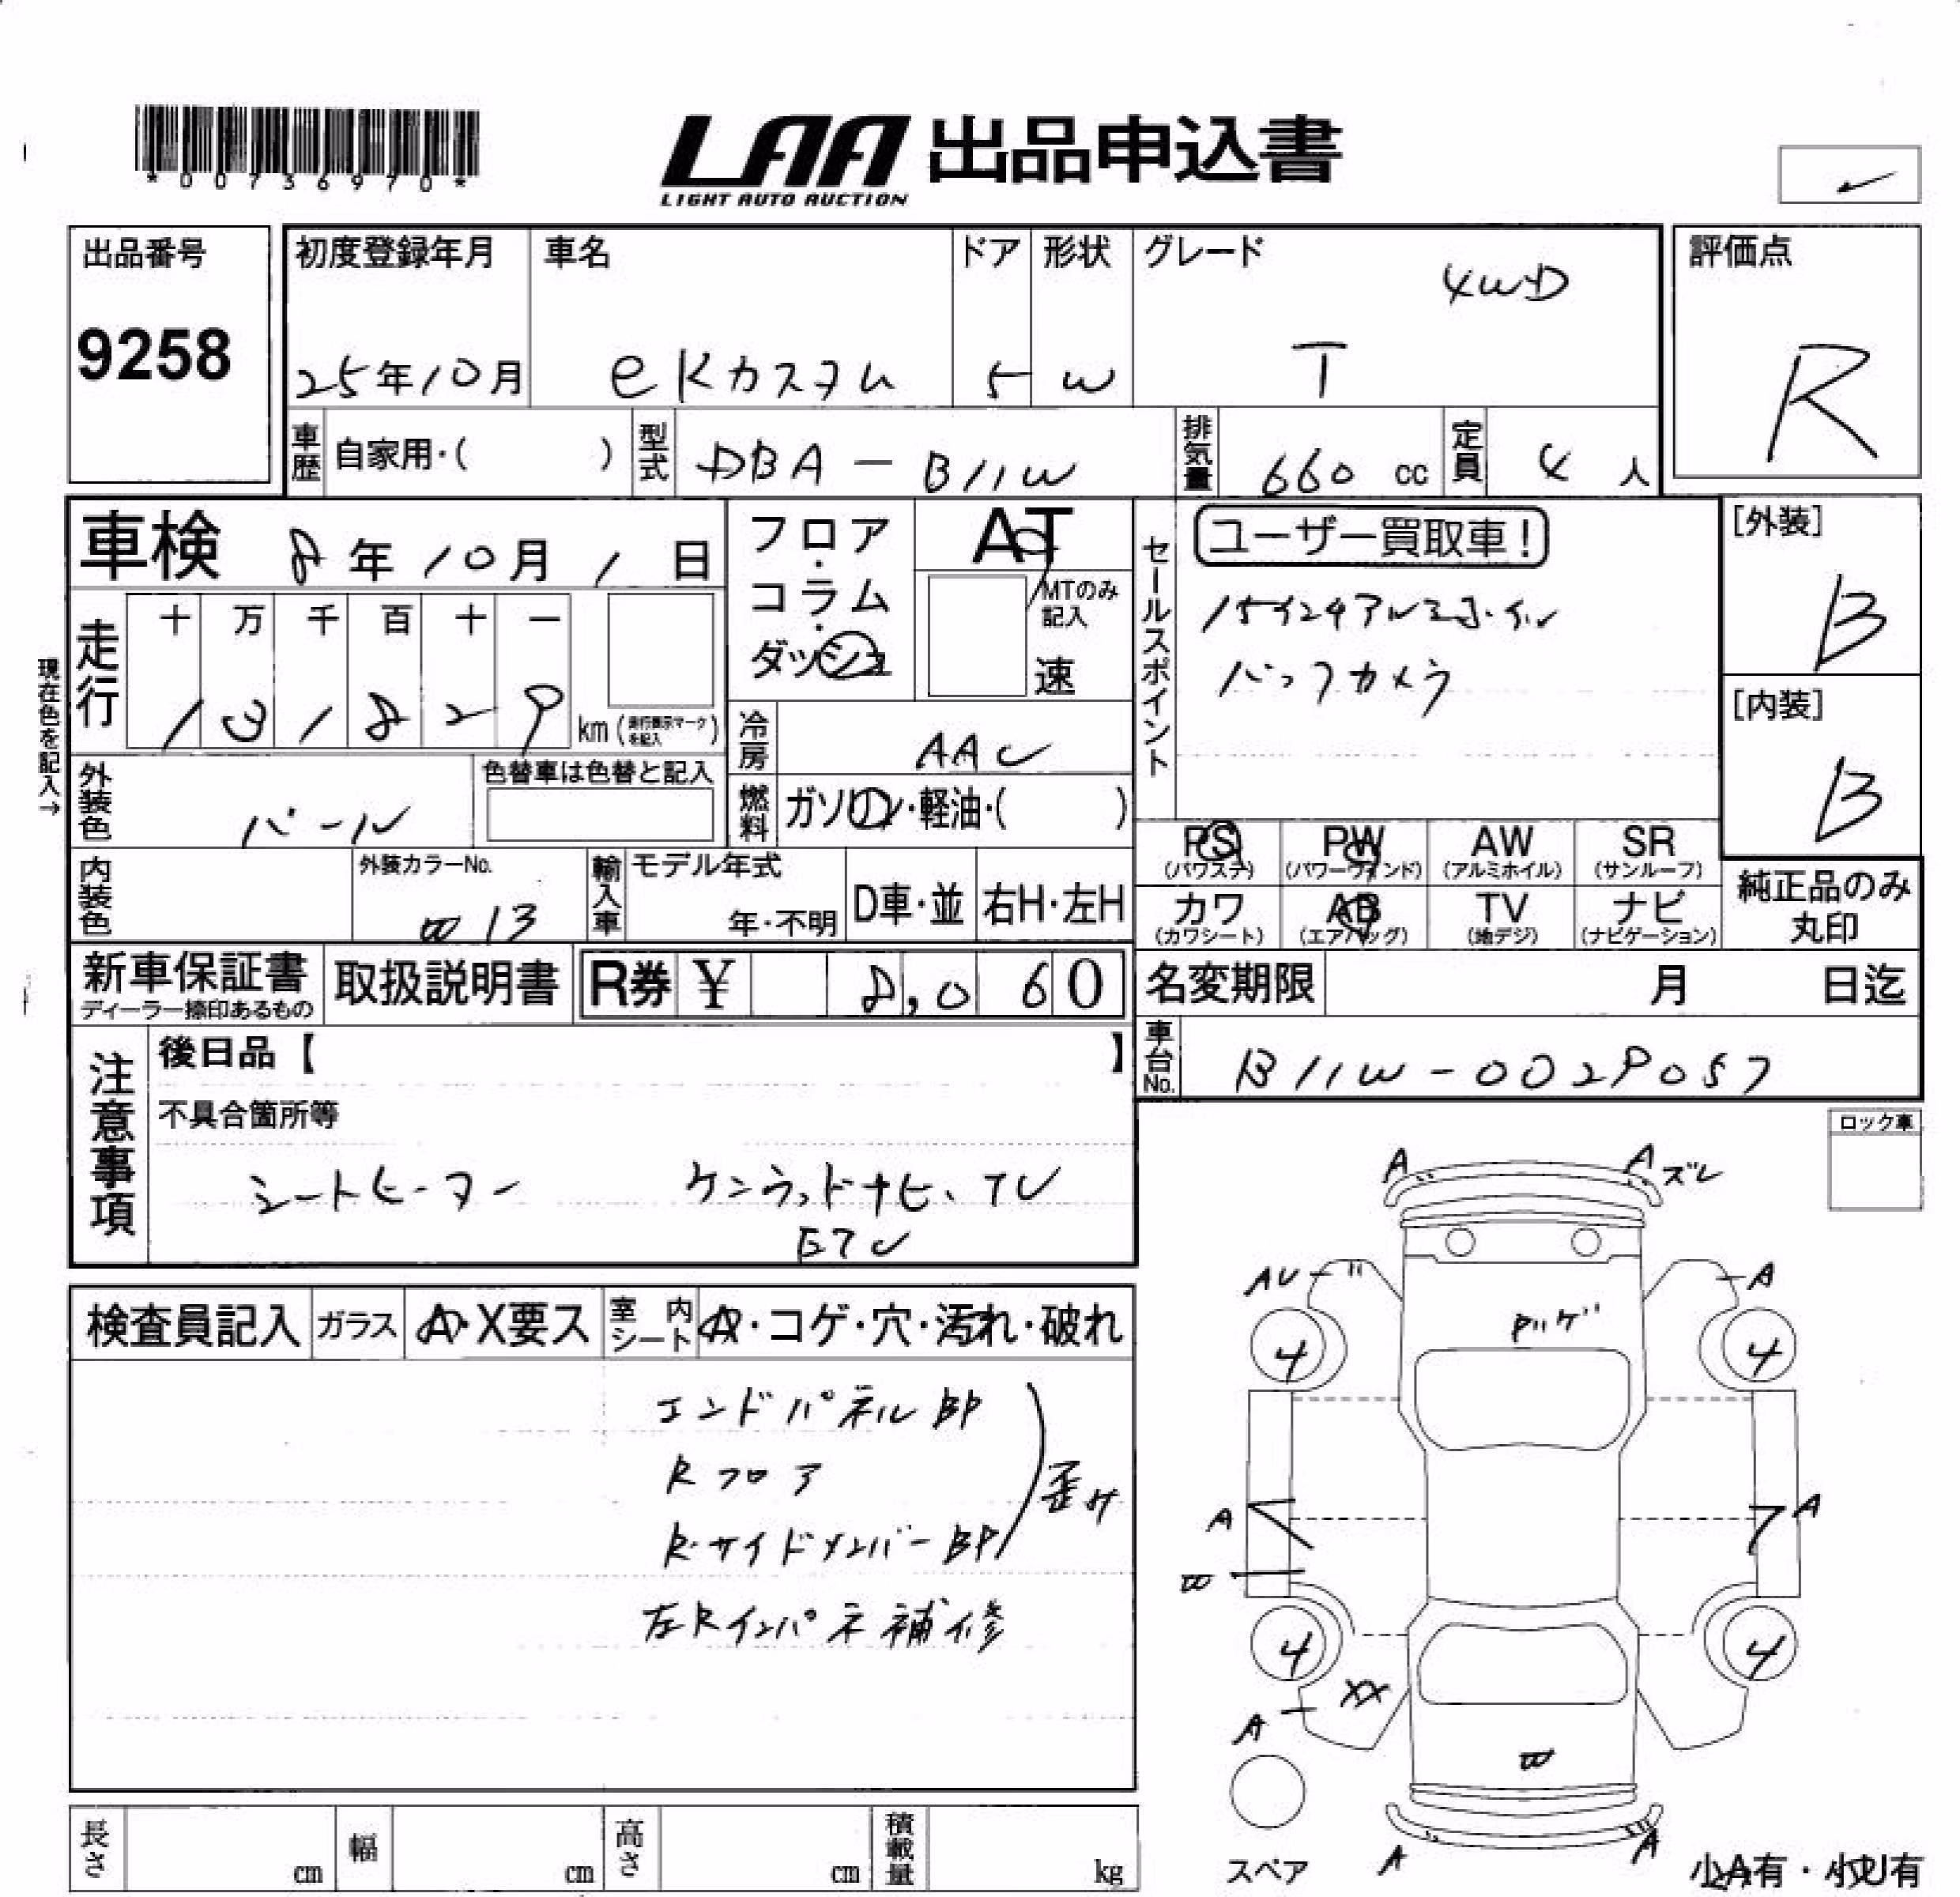 *00736970*
LAA 出品申込書
LIGHT AUTO AUCTION
出品番号
9258
初度登録年月
25年10月
車名
eKカスタム
ドア
5
形状
W
グレード
4WD
T
評価点
R
車歴
自家用・( )
型式
DBA - B11W
排気量
660 cc
定員
4 人
車検
8年10月1日
走行
十 万 千 百 十 一
1 3 1 8 2 9
km (走行表示マークを記入)
現在色を記入→
フロア・コラム・ダッシュ
AT
MTのみ記入
速
冷房
AAC
燃料
ガソリン・軽油・( )
外装色
パール
色替車は色替と記入
内装色
外装カラーNo.
W13
輸入車
モデル年式
年・不明
D車・並
右H・左H
セールスポイント
ユーザー買取車!
15インチアルミホイル
バックカメラ
[外装]
B
[内装]
B
PS
(パワステ)
PW
(パワーウィンド)
AW
(アルミホイル)
SR
(サンルーフ)
カワ
(カワシート)
AB
(エアバッグ)
TV
(地デジ)
ナビ
(ナビゲーション)
純正品のみ
丸印
新車保証書
ディーラー捺印あるもの
取扱説明書
R券 ¥ 8,060
名変期限
月 日迄
車台No.
B11W-0029057
注意事項
後日品【 】
不具合箇所等
シートヒーター ケンウッドナビ、TV
ETC
ロック車
検査員記入
ガラス
A・X要ス
室内シート
A・コゲ・穴・汚れ・破れ
エンドパネルBP
Rフロア
Rサイドメンバー BP
歪み
左Rインパネ補修
A
A ズレ
AU
A
ハゲ
4
4
A
A
W
4
4
XX
A
W
A
A
スペア
小A有・小U有
長さ
cm
幅
cm
高さ
cm
積載量
kg